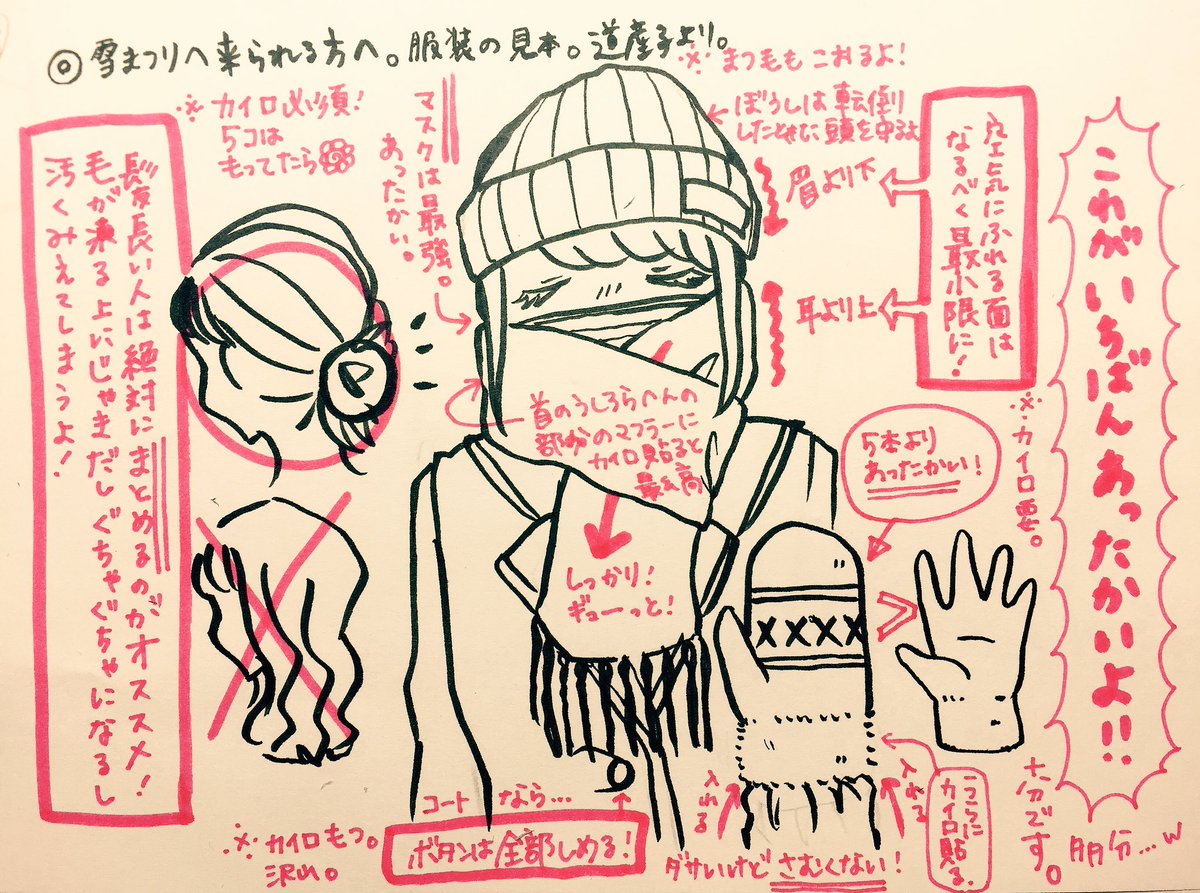 ◎雪まつりへ来られる方へ。服装の見本。道産子より。
※まつ毛もこおるよ!
※カイロ必須!
5コは
もってたら
マスクは最強。
あったかい。
ぼうしは転倒
したときに頭を守るよ
眉より下
耳より上
空気にふれる面は
なるべく最小限に!
これがいちばんあったかいよ!!
多分…w
髪長い人は絶対にまとめるのがオススメ!
毛が乗る上にじゃまだしぐちゃぐちゃになるし
汚くみえてしまうよ!
首のうしろらへんの
部分のマフラーに
カイロ貼ると
最高
しっかり!
ギューっと!
5本より
あったかい!
XXXX
>
※カイロ要。
大分です。
入れる
入れる
ここらに
カイロ貼る、
コートなら…
ボタンは全部しめる!
ダサいけどさむくない!
※カイロもつ。
沢山。